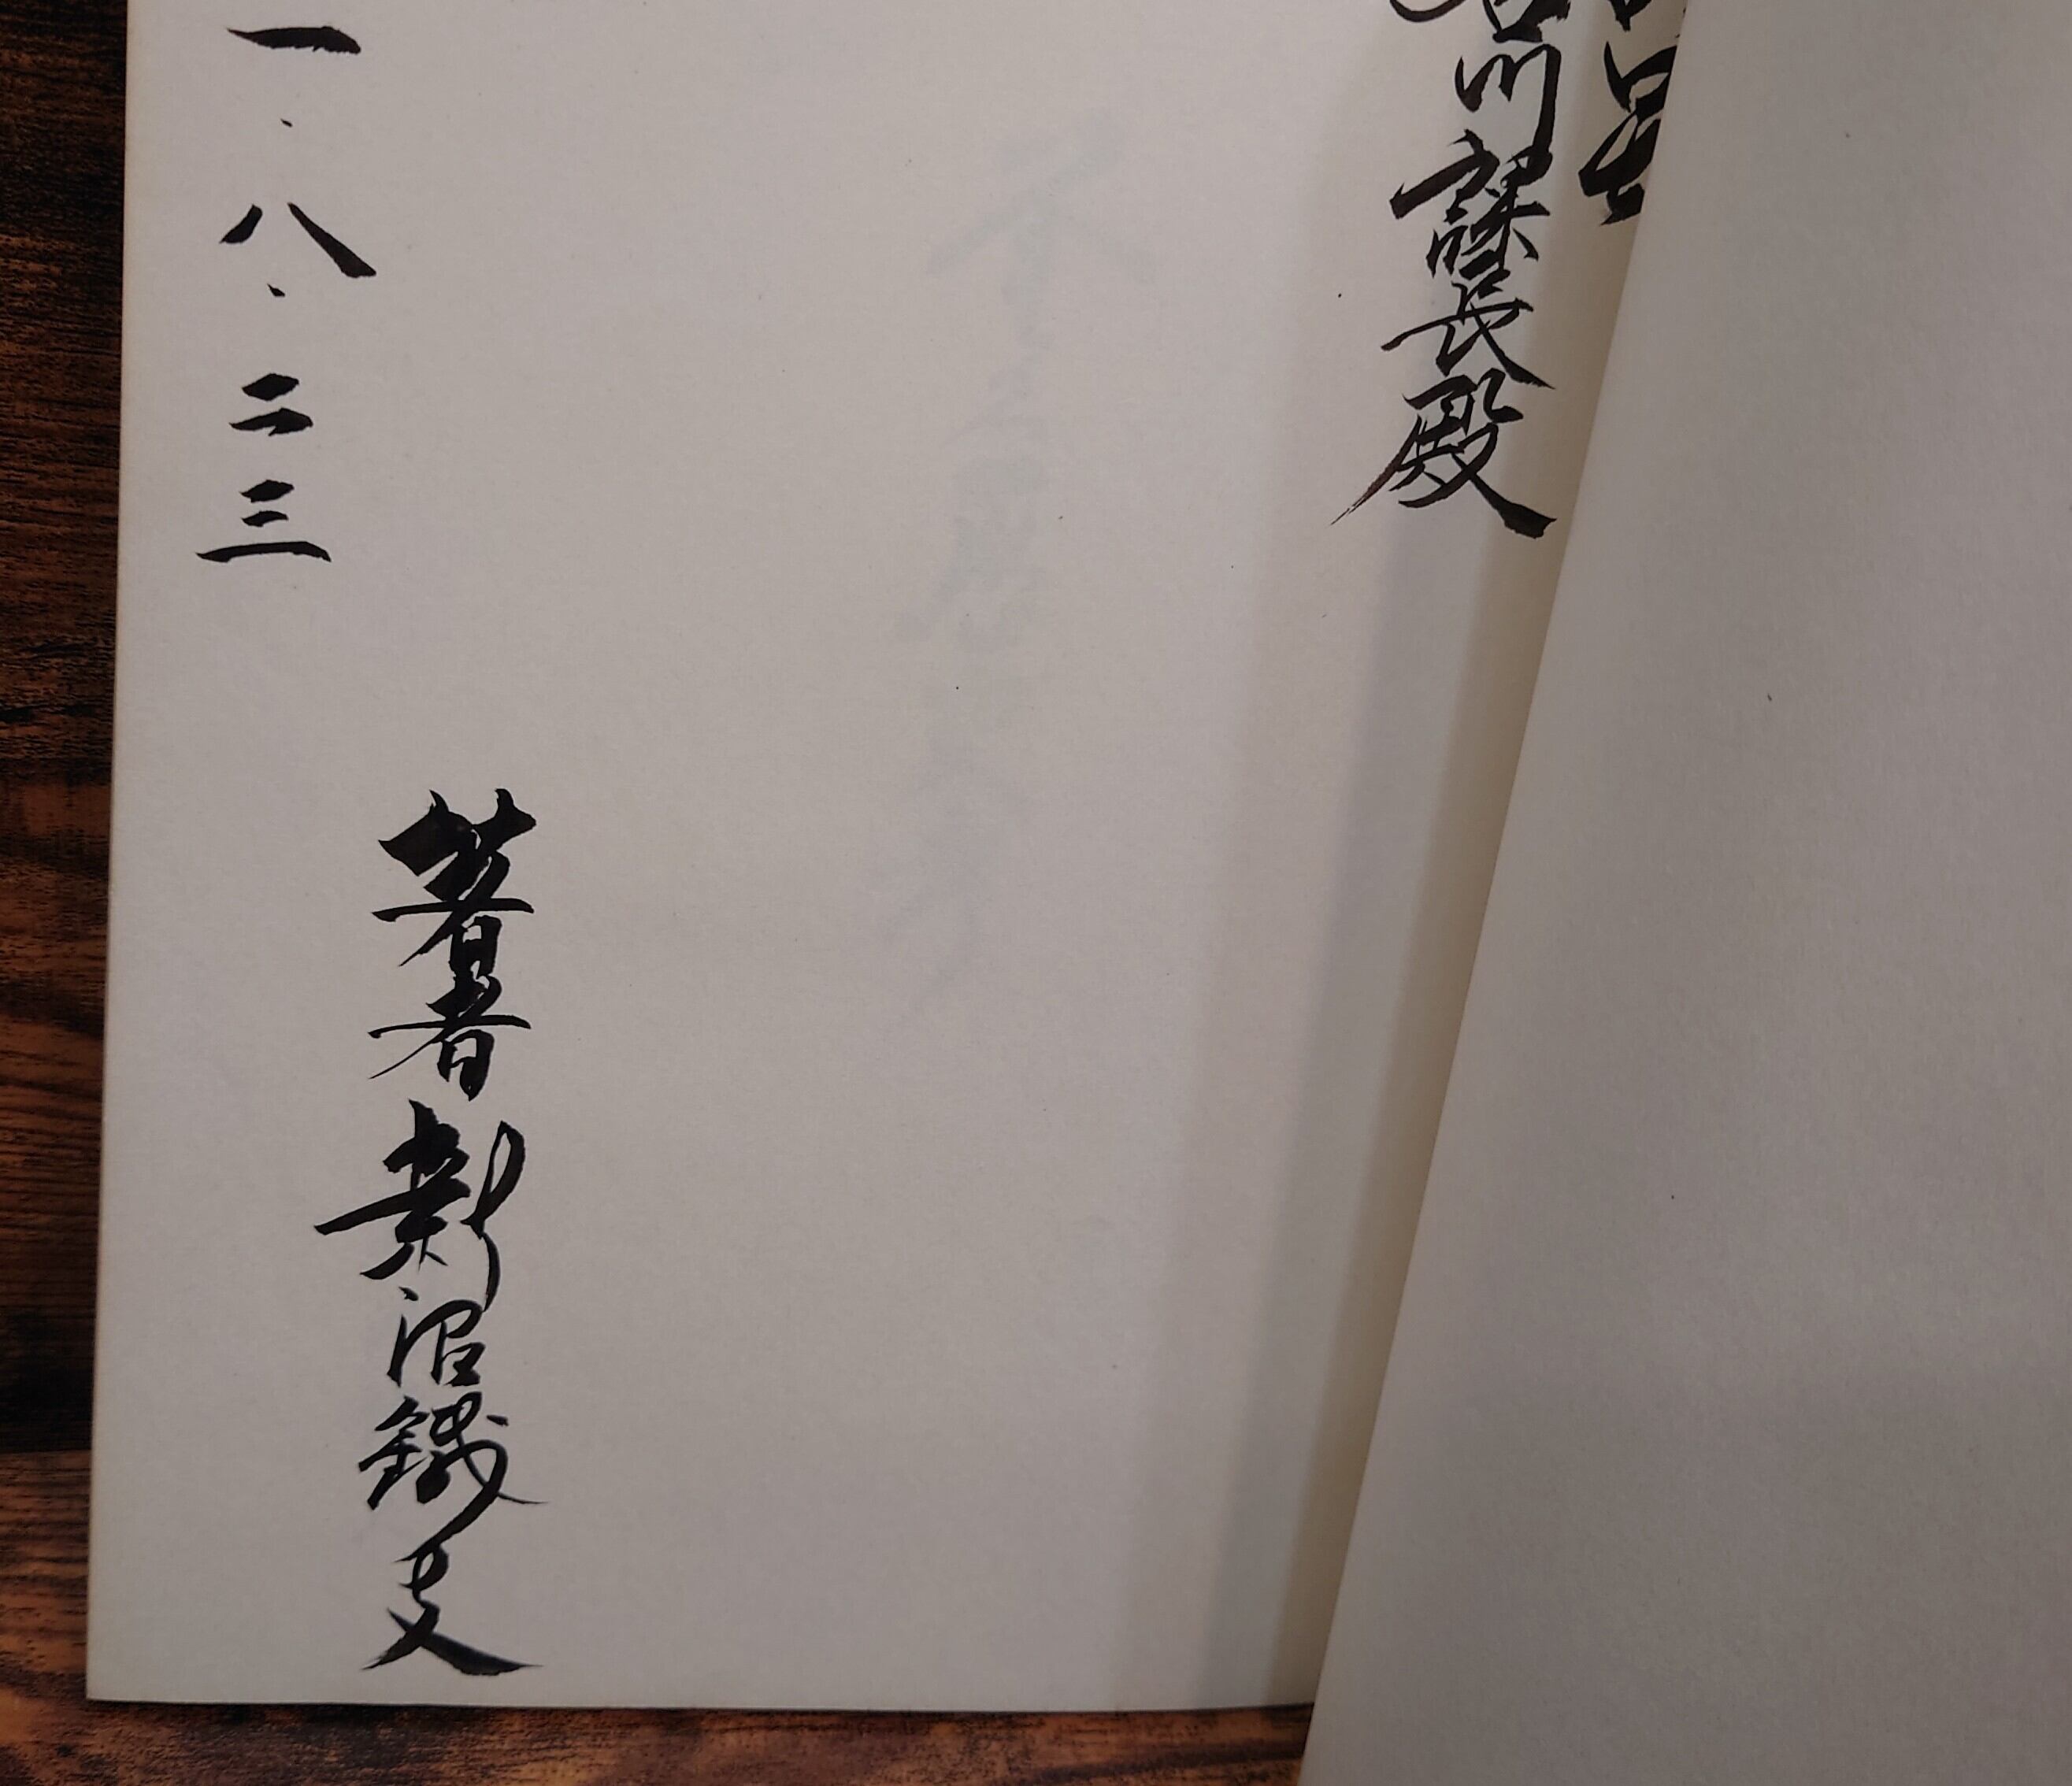 川課長殿
著者 新沼鐵夫
一・八・二三